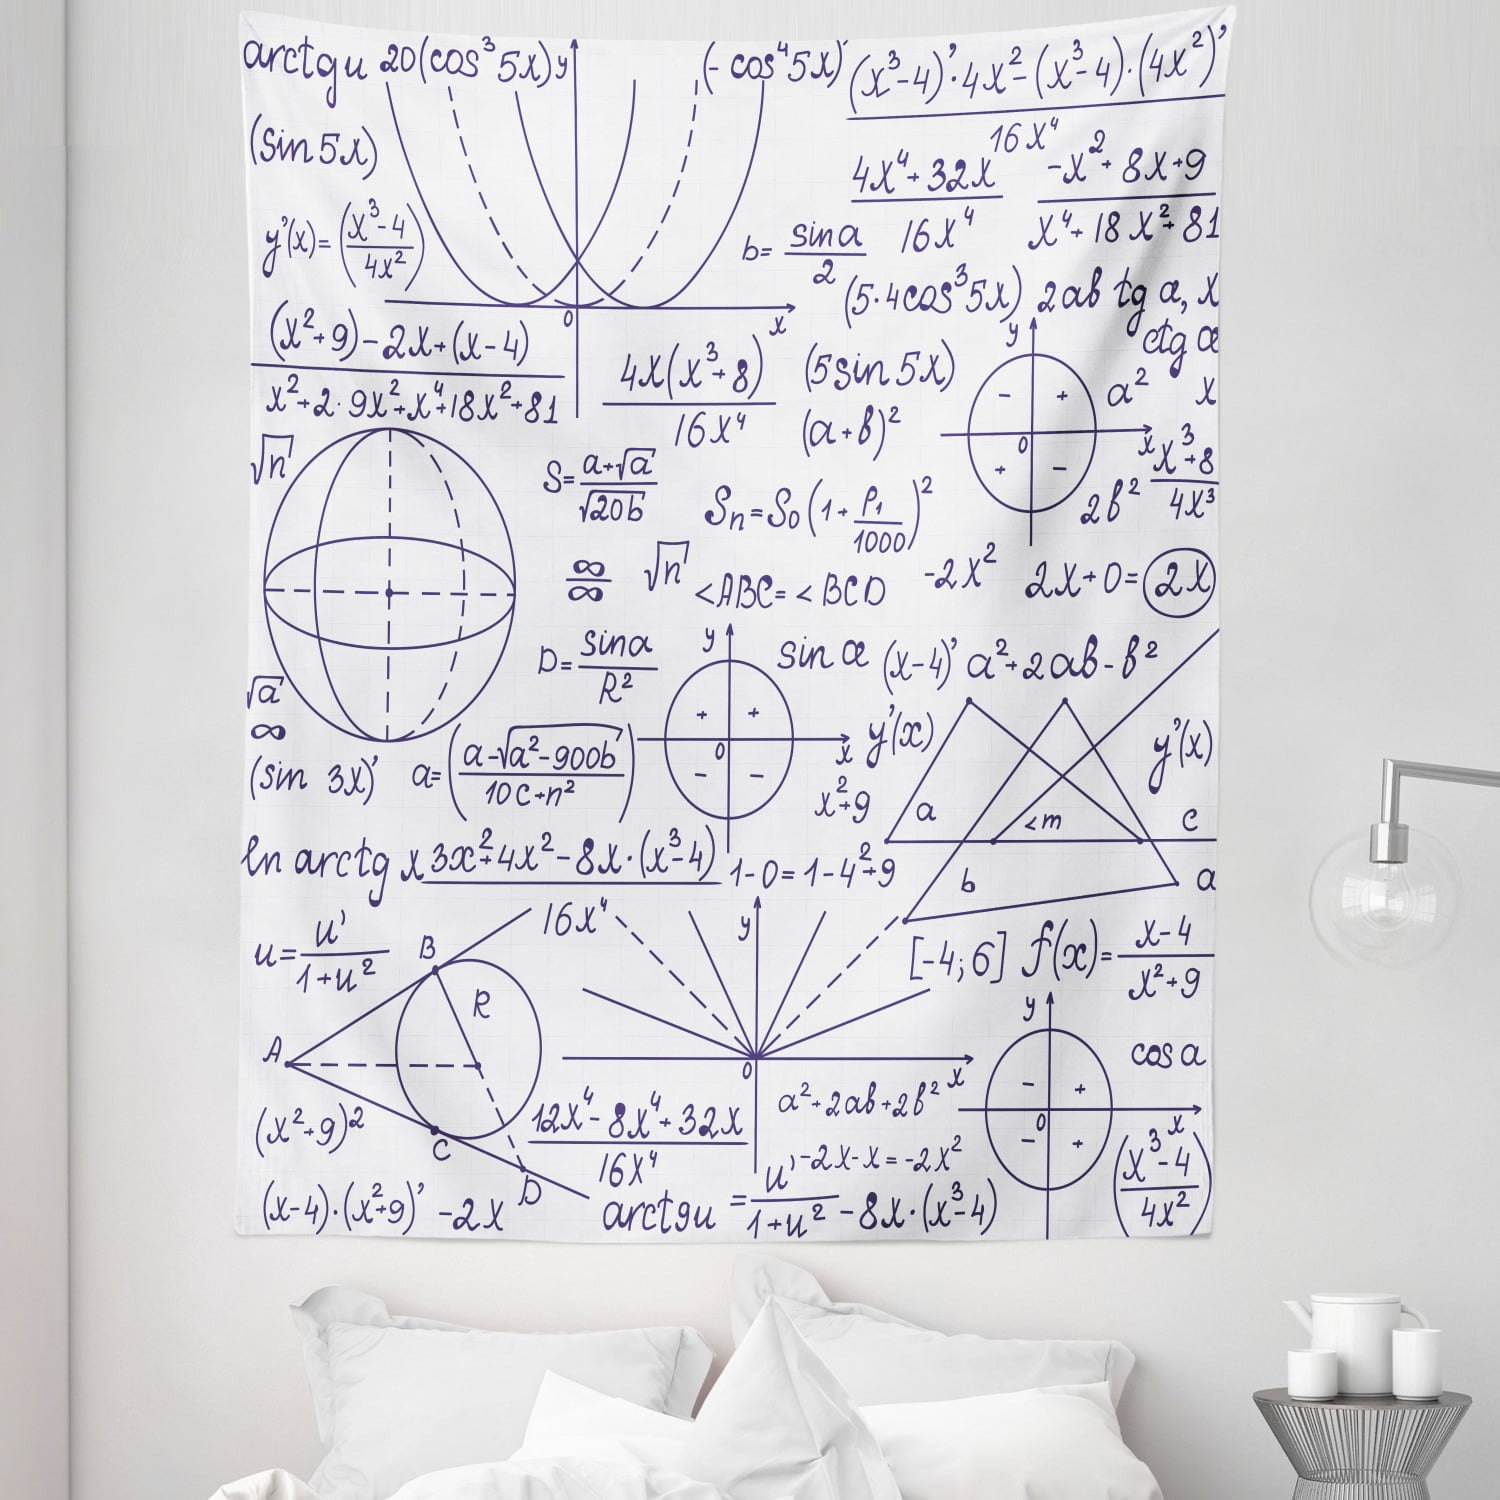 arctgu 20(cos³5x) y (-cos⁴5x)' (x³-4)'·4x²-(x³-4)·(4x²)'
16x⁴
(sin 5x)
4x⁴+32x
16x⁴
-x²+8x+9
x⁴+18x²+81
y'(x)=(x³-4/4x²)
b= sina/2
(5·4cos³5x) 2ab tg α, x
0 x
y ctg α
(x²+9)-2x+(x-4)
x²+2·9x²+x⁴+18x²+81
4x(x³+8)
16x⁴
(5sin 5x)
- + a² x
(a+b)²
0 x
+ -
x³+8
4x³
√n
S= a+√a/√20b
Sn=S0(1+P1/1000)²
2b²
∞/∞ √n <ABC=<BCD -2x² 2x+0=2x
D= sina/R²
y
sin α (x-4)' a²+2ab-b²
√a
∞
+ +
0 x
- -
y'(x) y'(x)
(sin 3x)' a=(a-√a²-900b/10c+n²)
x²+9 a <m c
ln arctg x 3x²+4x²-8x·(x³-4) 1-0=1-4²+9 b a
16x⁴
u= u'/1+u²
B
R
y
[-4;6] f(x)= x-4/x²+9
A
0 x
y
cos a
- +
0 x
- +
(x²+9)²
C
12x⁴-8x⁴+32x
16x⁴
a²+2ab+2b²
-2x-x=-2x²
(x³-4/4x²)
D
(x-4)·(x²+9)' -2x arctgu = u'/1+u² -8x·(x³-4)